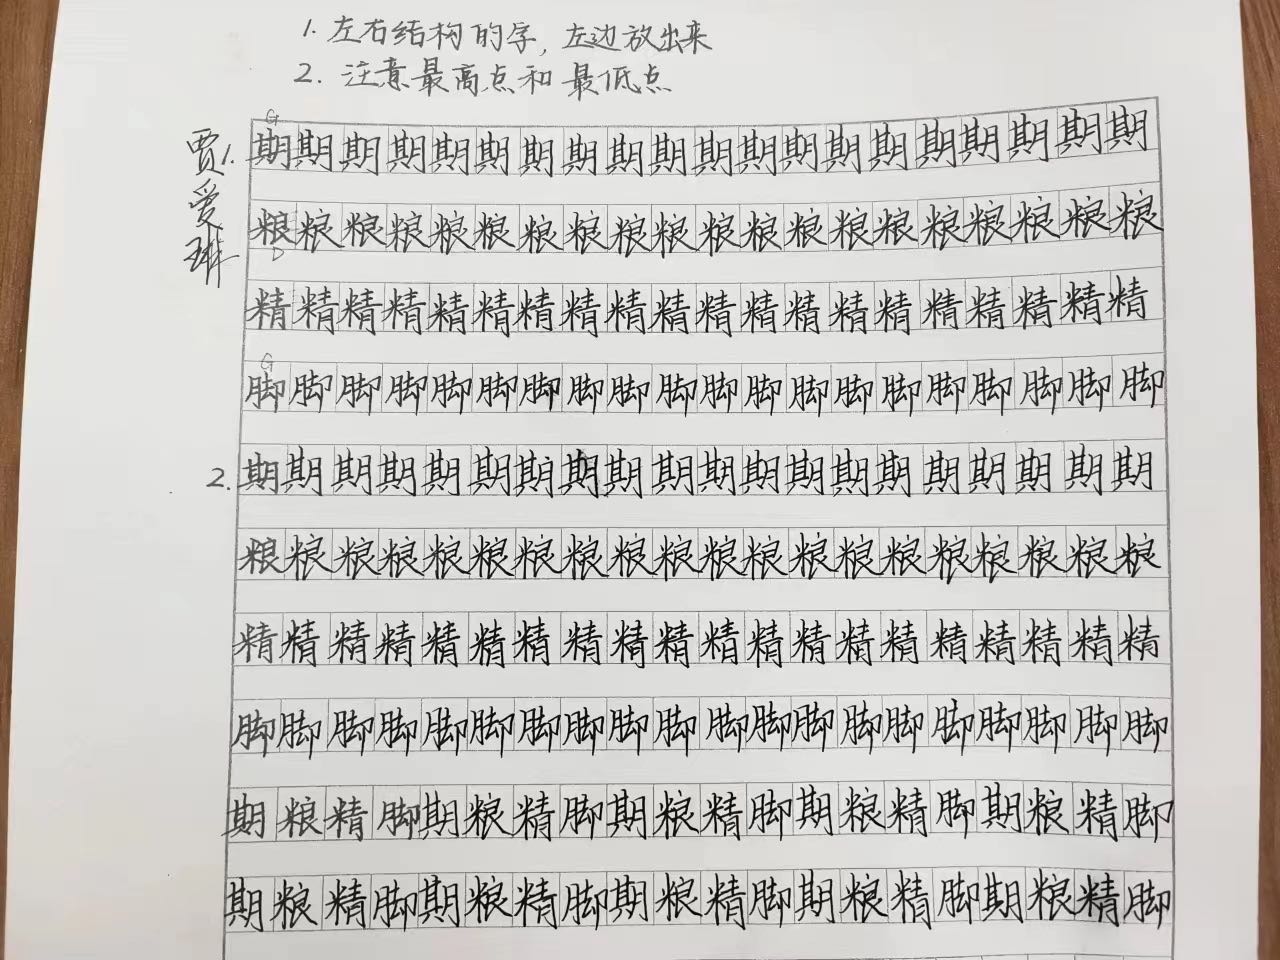 1. 左右结构的字, 左边放出来
2. 注意最高点和最低点
贾爱琳
G
1. 期期期期期期期期期期期期期期期期期期期期
粮粮粮粮粮粮粮粮粮粮粮粮粮粮粮粮粮粮粮粮
D
精精精精精精精精精精精精精精精精精精精精
G
脚脚脚脚脚脚脚脚脚脚脚脚脚脚脚脚脚脚脚脚
2. 期期期期期期期期期期期期期期期期期期期期
粮粮粮粮粮粮粮粮粮粮粮粮粮粮粮粮粮粮粮粮
精精精精精精精精精精精精精精精精精精精精
脚脚脚脚脚脚脚脚脚脚脚脚脚脚脚脚脚脚脚脚
期粮精脚期粮精脚期粮精脚期粮精脚期粮精脚
期粮精脚期粮精脚期粮精脚期粮精脚期粮精脚